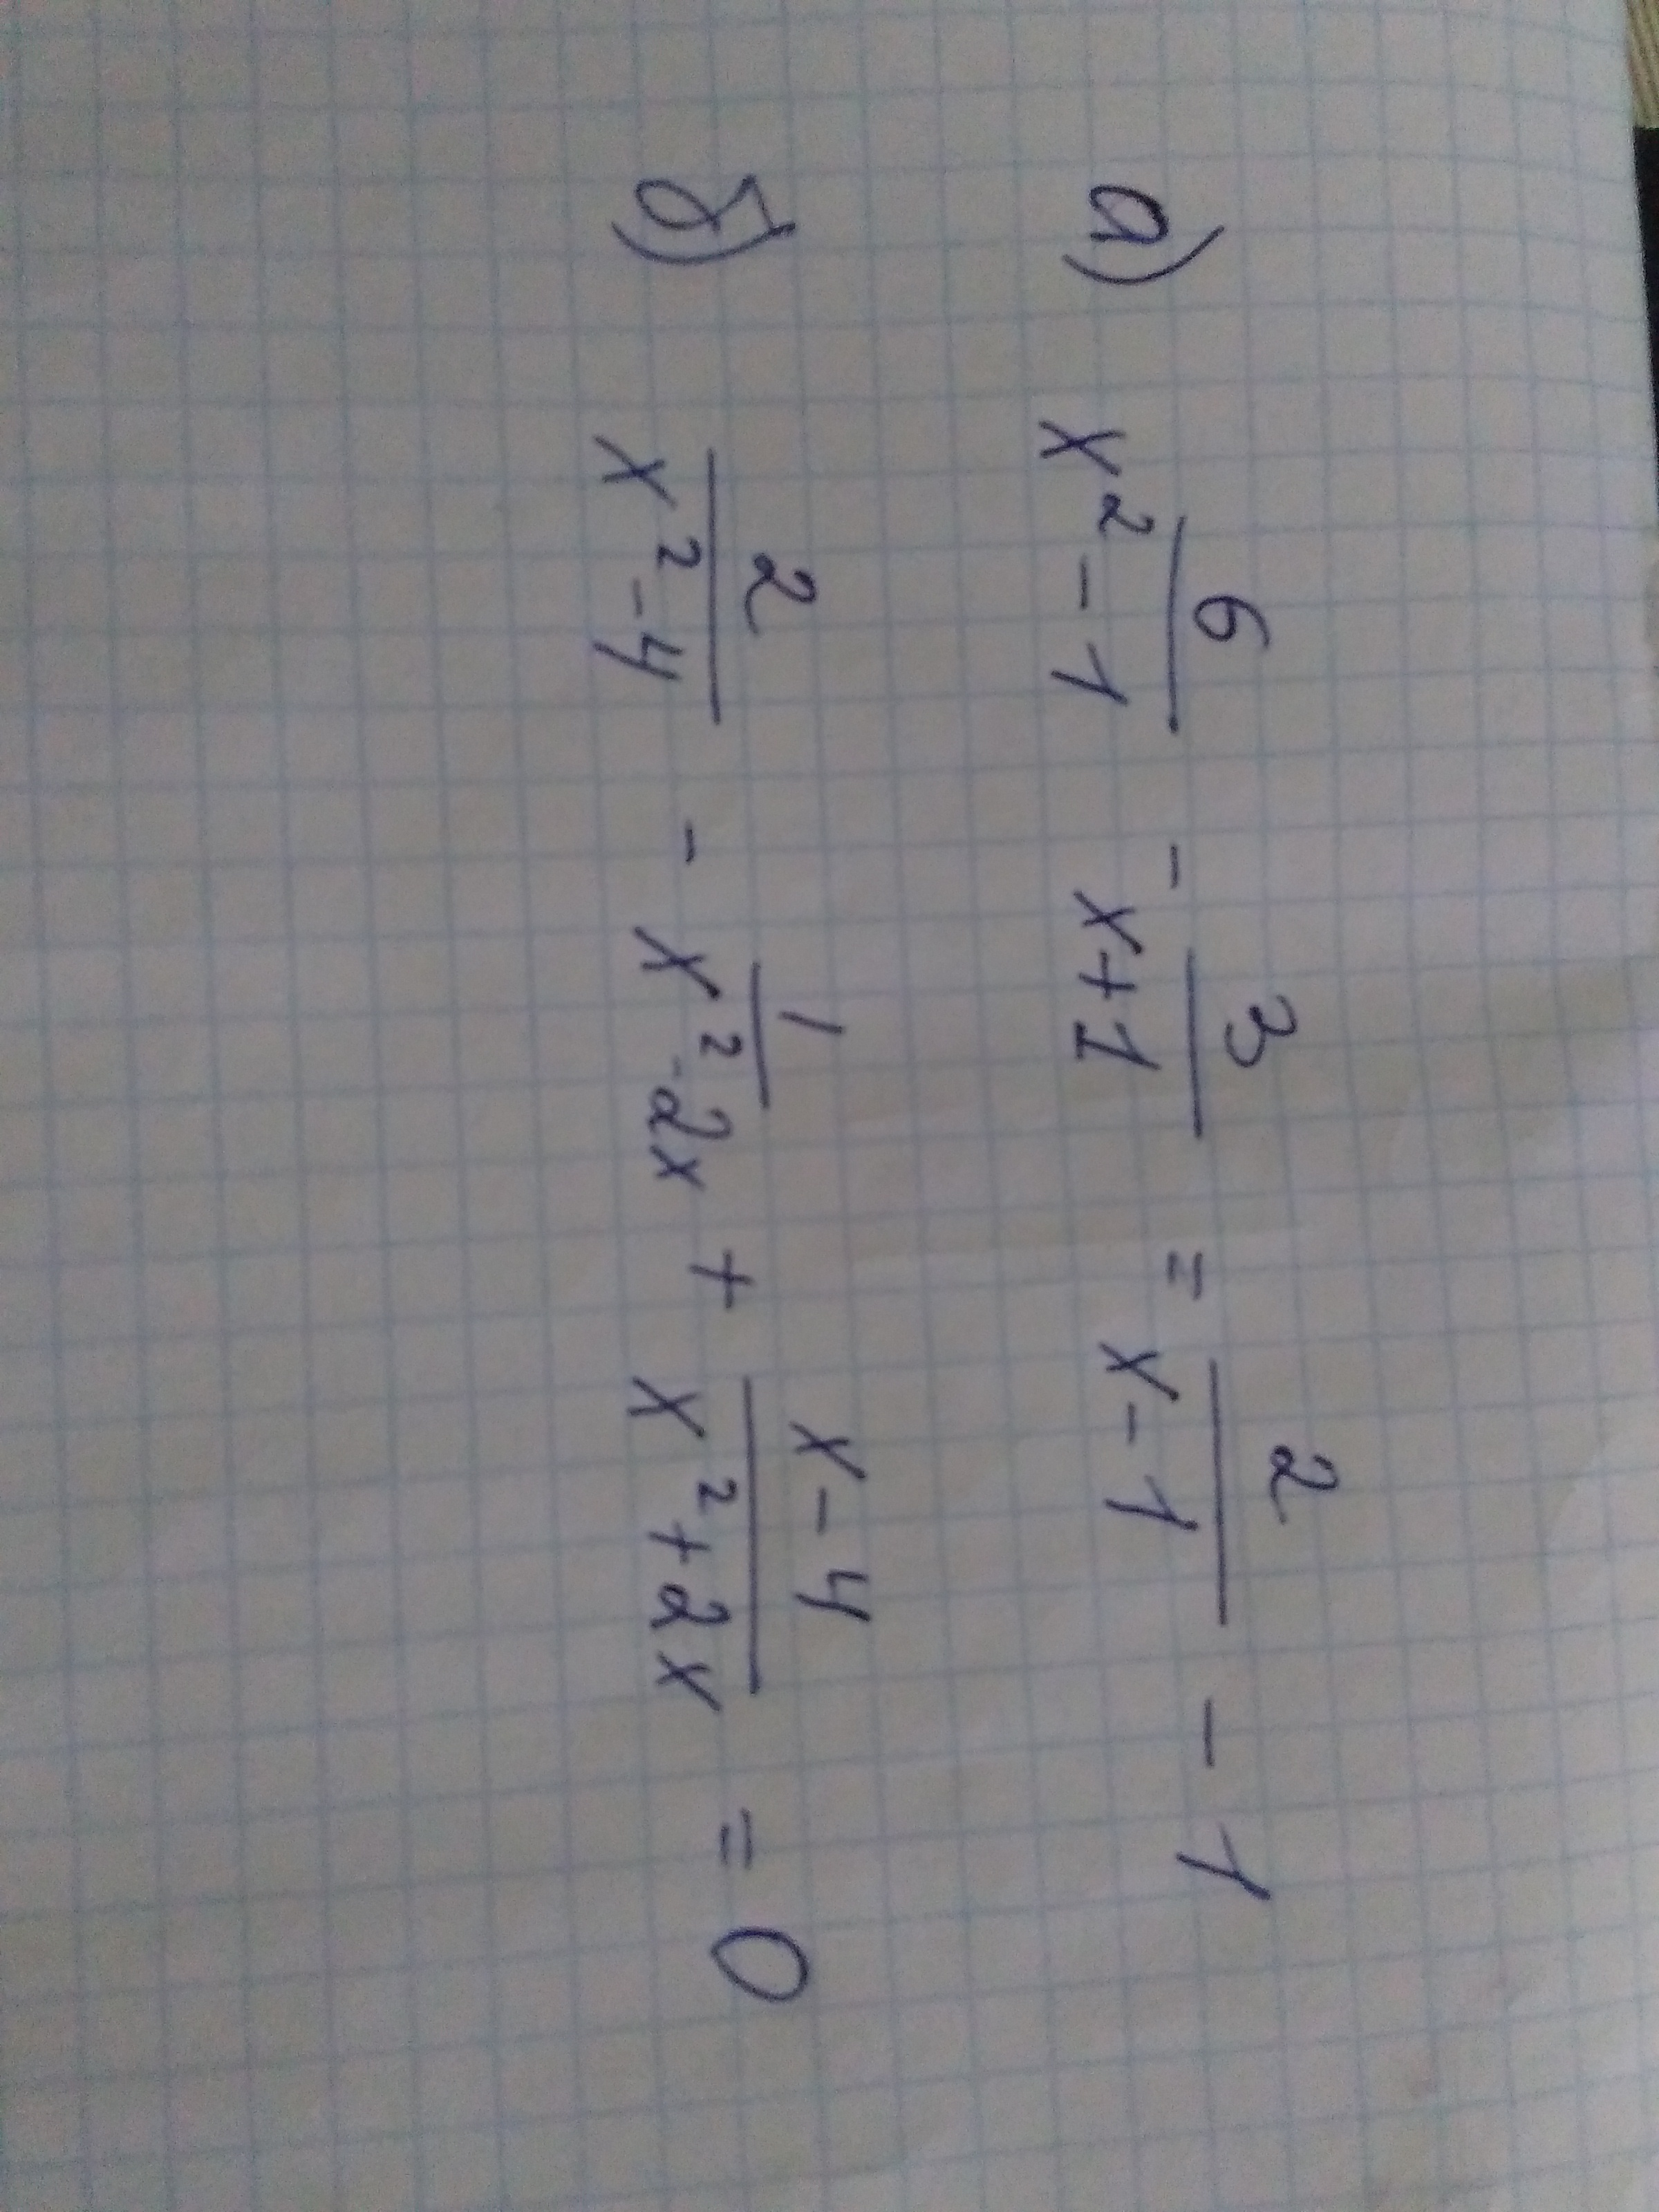 а) 6/(x²-1) - 3/(x+1) = 2/(x-1) - 1
б) 2/(x²-4) - 1/(x²-2x) + (x-4)/(x²+2x) = 0